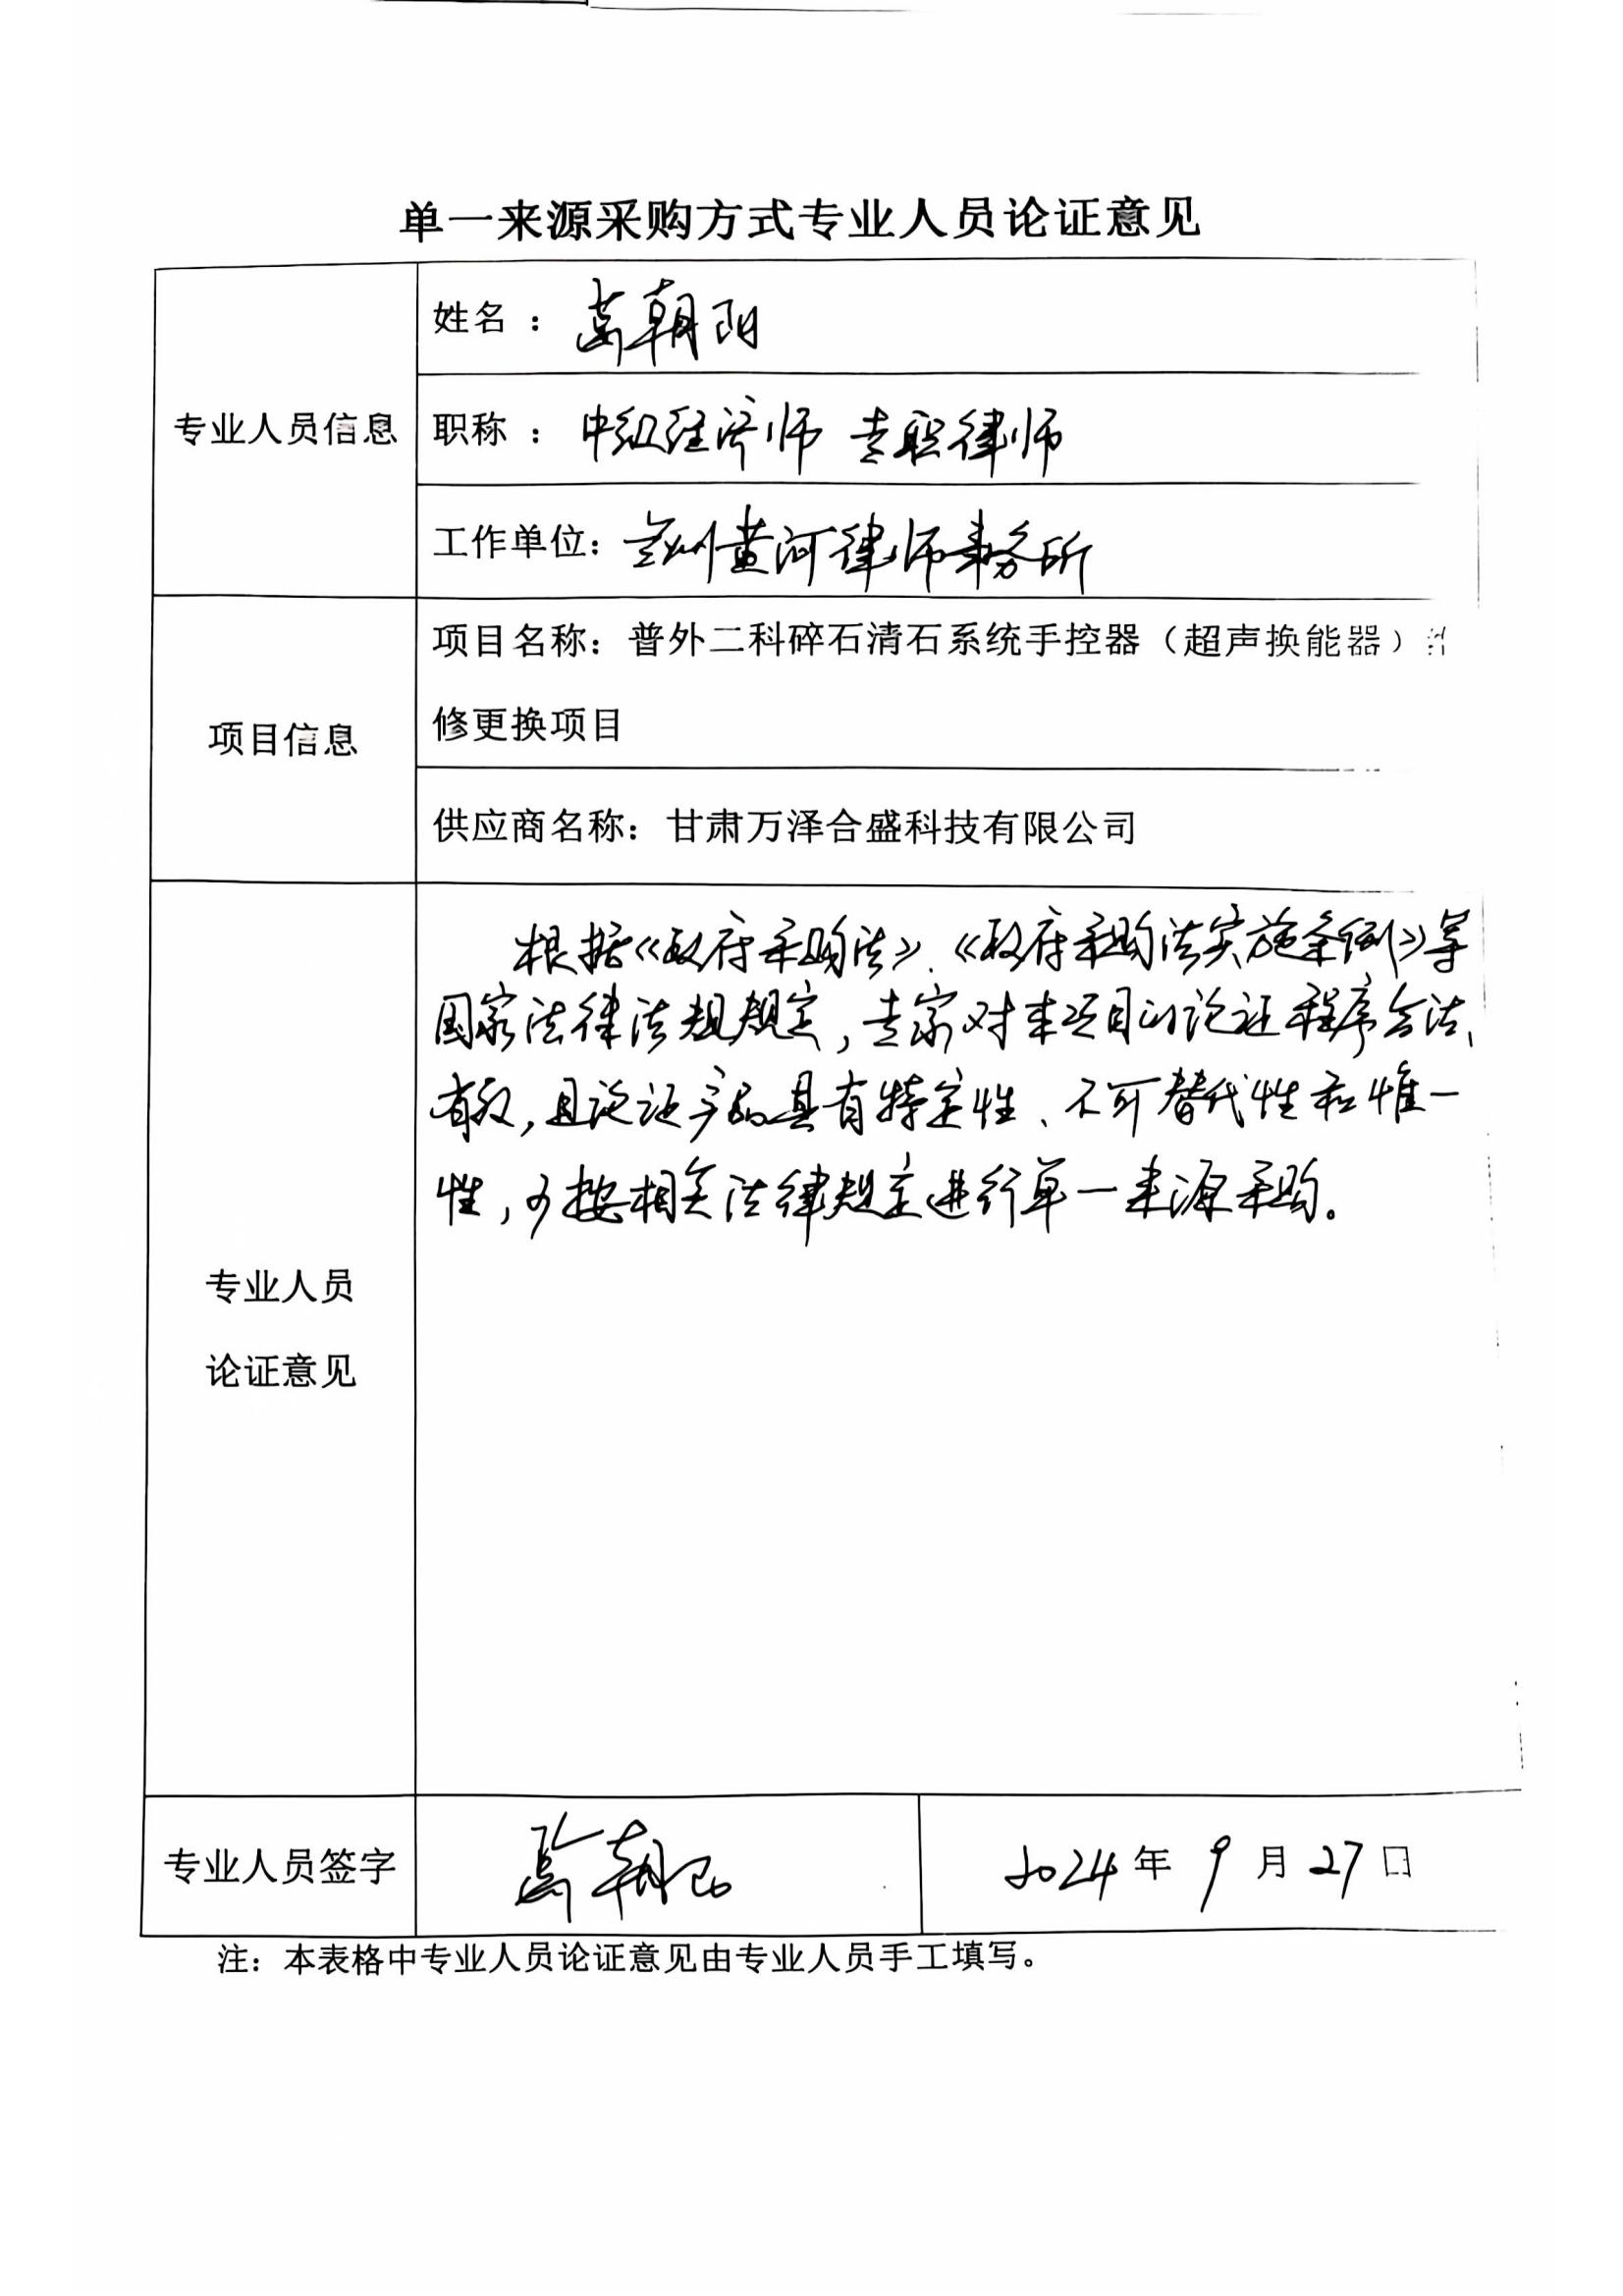 单一来源采购方式专业人员论证意见
专业人员信息
姓名：高朝阳
职称：中级经济师 专职律师
工作单位：兰州黄河律师事务所
项目信息
项目名称：普外二科碎石清石系统手控器（超声换能器）
修更换项目
供应商名称：甘肃万泽合盛科技有限公司
专业人员
论证意见
根据《政府采购法》、《政府采购法实施条例》等
国家法律法规规定，专家对本项目的论证程序合法、
有效，且论证产品具有特定性、不可替代性和惟一
性，可按相关法律规定进行单一来源采购。
专业人员签字
高朝阳
2024年9月27日
注：本表格中专业人员论证意见由专业人员手工填写。